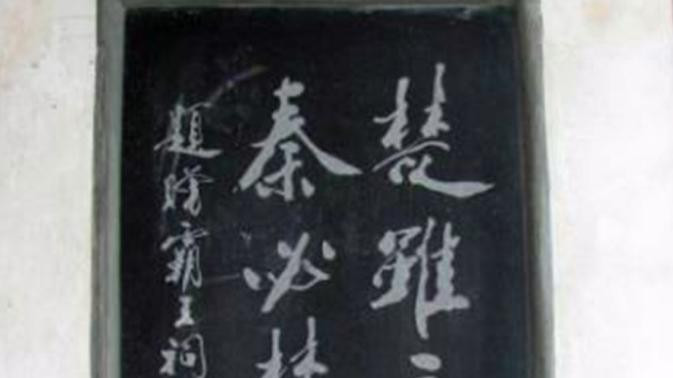 楚雖
秦必楚
題霸王祠